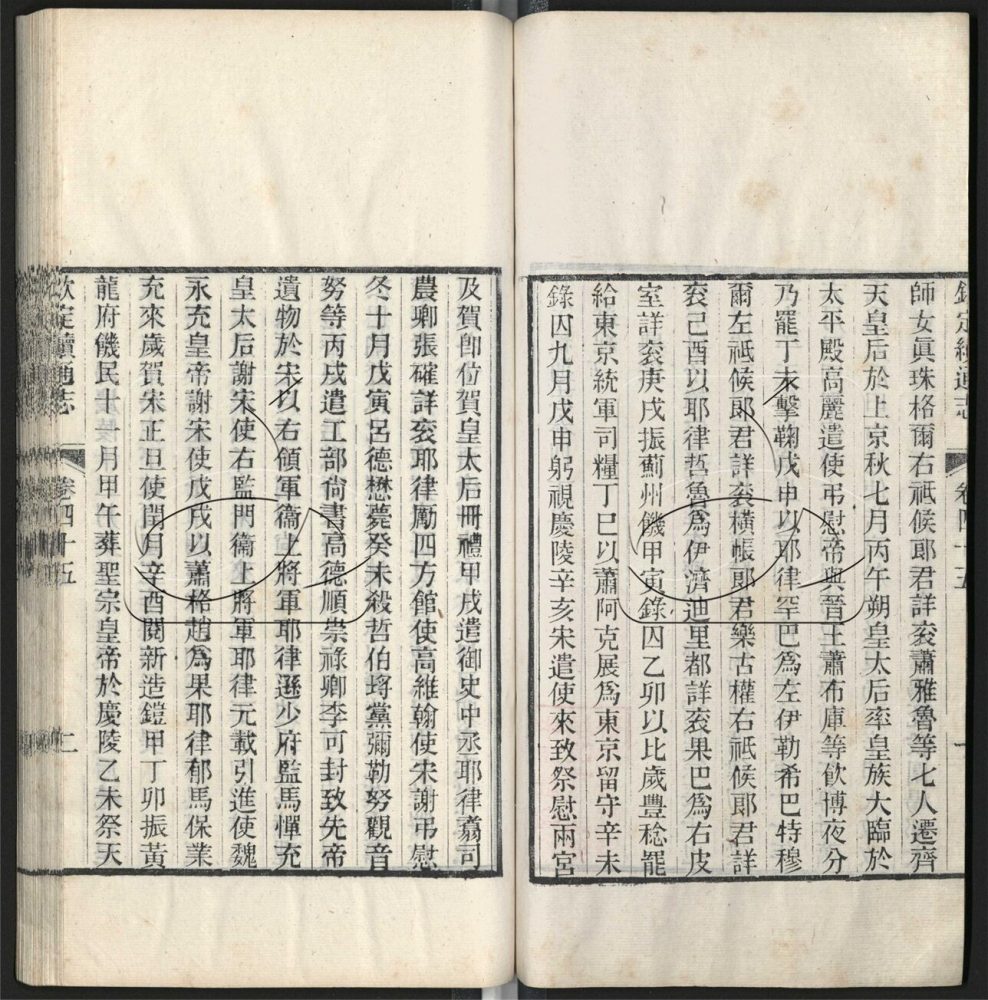 欽定續通志 卷四十五 一
師女眞珠格爾右祗候郎君詳袞蕭雅魯等七人遷齊
天皇后於上京秋七月丙午朔皇太后率皇族大臨於
太平殿高麗遣使弔慰帝與晉王蕭布庫等飮博夜分
乃罷丁未擊鞠戊申以耶律罕巴爲左伊勒希巴特穆
爾左祗候郞君詳袞橫帳郞君樂古權右祗候郞君詳
袞己酉以耶律哲魯爲伊濟迪里都詳袞果巴爲右皮
室詳袞庚戌振薊州饑甲寅錄囚乙卯以比歲豐稔罷
給東京統軍司糧丁巳以蕭阿克展爲東京留守辛未
錄囚九月戊申躬視慶陵辛亥宋遣使來致祭慰兩宮
及賀卽位賀皇太后冊禮甲戌遣御史中丞耶律翥司
農卿張確詳袞耶律勵四方館使高維翰使宋謝弔慰
冬十月戊寅呂德懋薨癸未殺哲伯埒黨彌勒努觀音
努等丙戌遣工部尙書高德順崇祿卿李可封致先帝
遺物於宋以右領軍衞上將軍耶律遜少府監馬憚充
皇太后謝宋使右監門衞上將軍耶律元載引進使魏
永充皇帝謝宋使戊戌以蕭格趙爲果耶律郁馬保業
充來歲賀宋正旦使閏月辛酉閱新造鎧甲丁卯振黃
龍府饑民十一月甲午葬聖宗皇帝於慶陵乙未祭天
欽定續通志 卷四十五 二